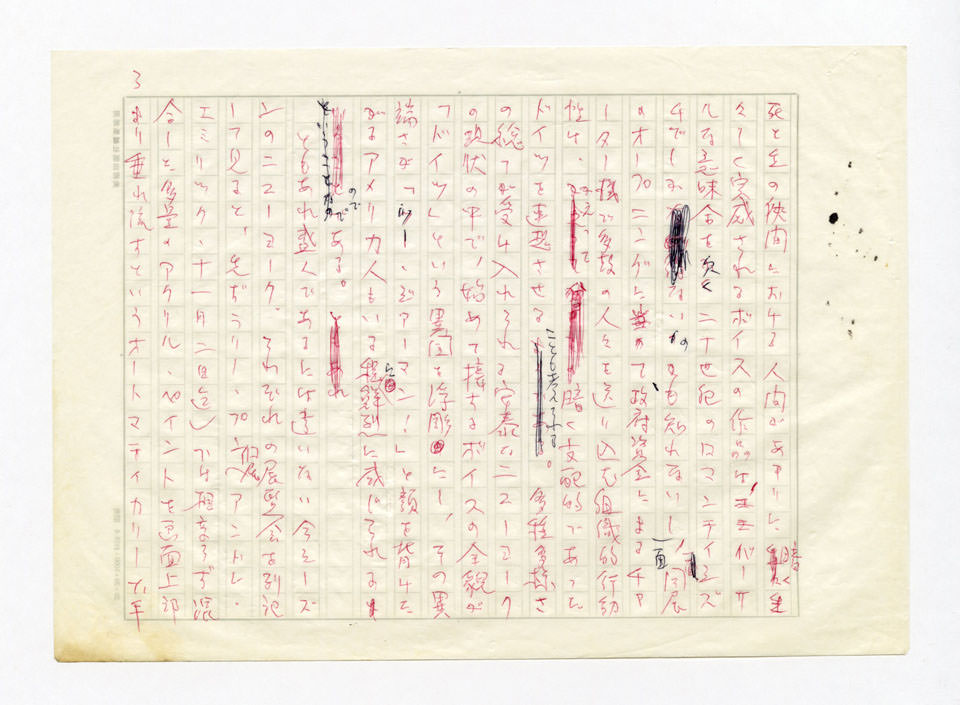 3
死と生の狭間における人間があまりに暗く生
々しく完成されるボイスの作品は、ユニバーサ
ルな意味合を欠く二十世紀のロマンチィシズ
ムでしかないのかも知れないし、一面、同展
のオープニングに 政府資金によるチャ
ーター機で多数の人々を送り込む組織的行動
性は、かえって 暗く支配的であった
ドイツを連想させることも考えられる。多種多様さ
の総てが受け入れられる安泰なニューヨーク
の現状の中で、始めて接するボイスの全貌が
「ドイツ」という異国を浮彫にし、その異
端さが「 ジァーマン!」と顔を背けた
がるアメリカ人もいる程鮮烈に感じられるよ
というこ のである。
ともあれ盛くであるには違いない今シーズ
ンのニューヨーク。それぞれの展覧会を列記
して見ると、先ずラリー・プーンズ展(アンドレ・
エミリック、十一月二日迄)では相変らず混
合した多量のアクリル・ペイントを画面上部
より垂れ流すというオートマティカリーな手